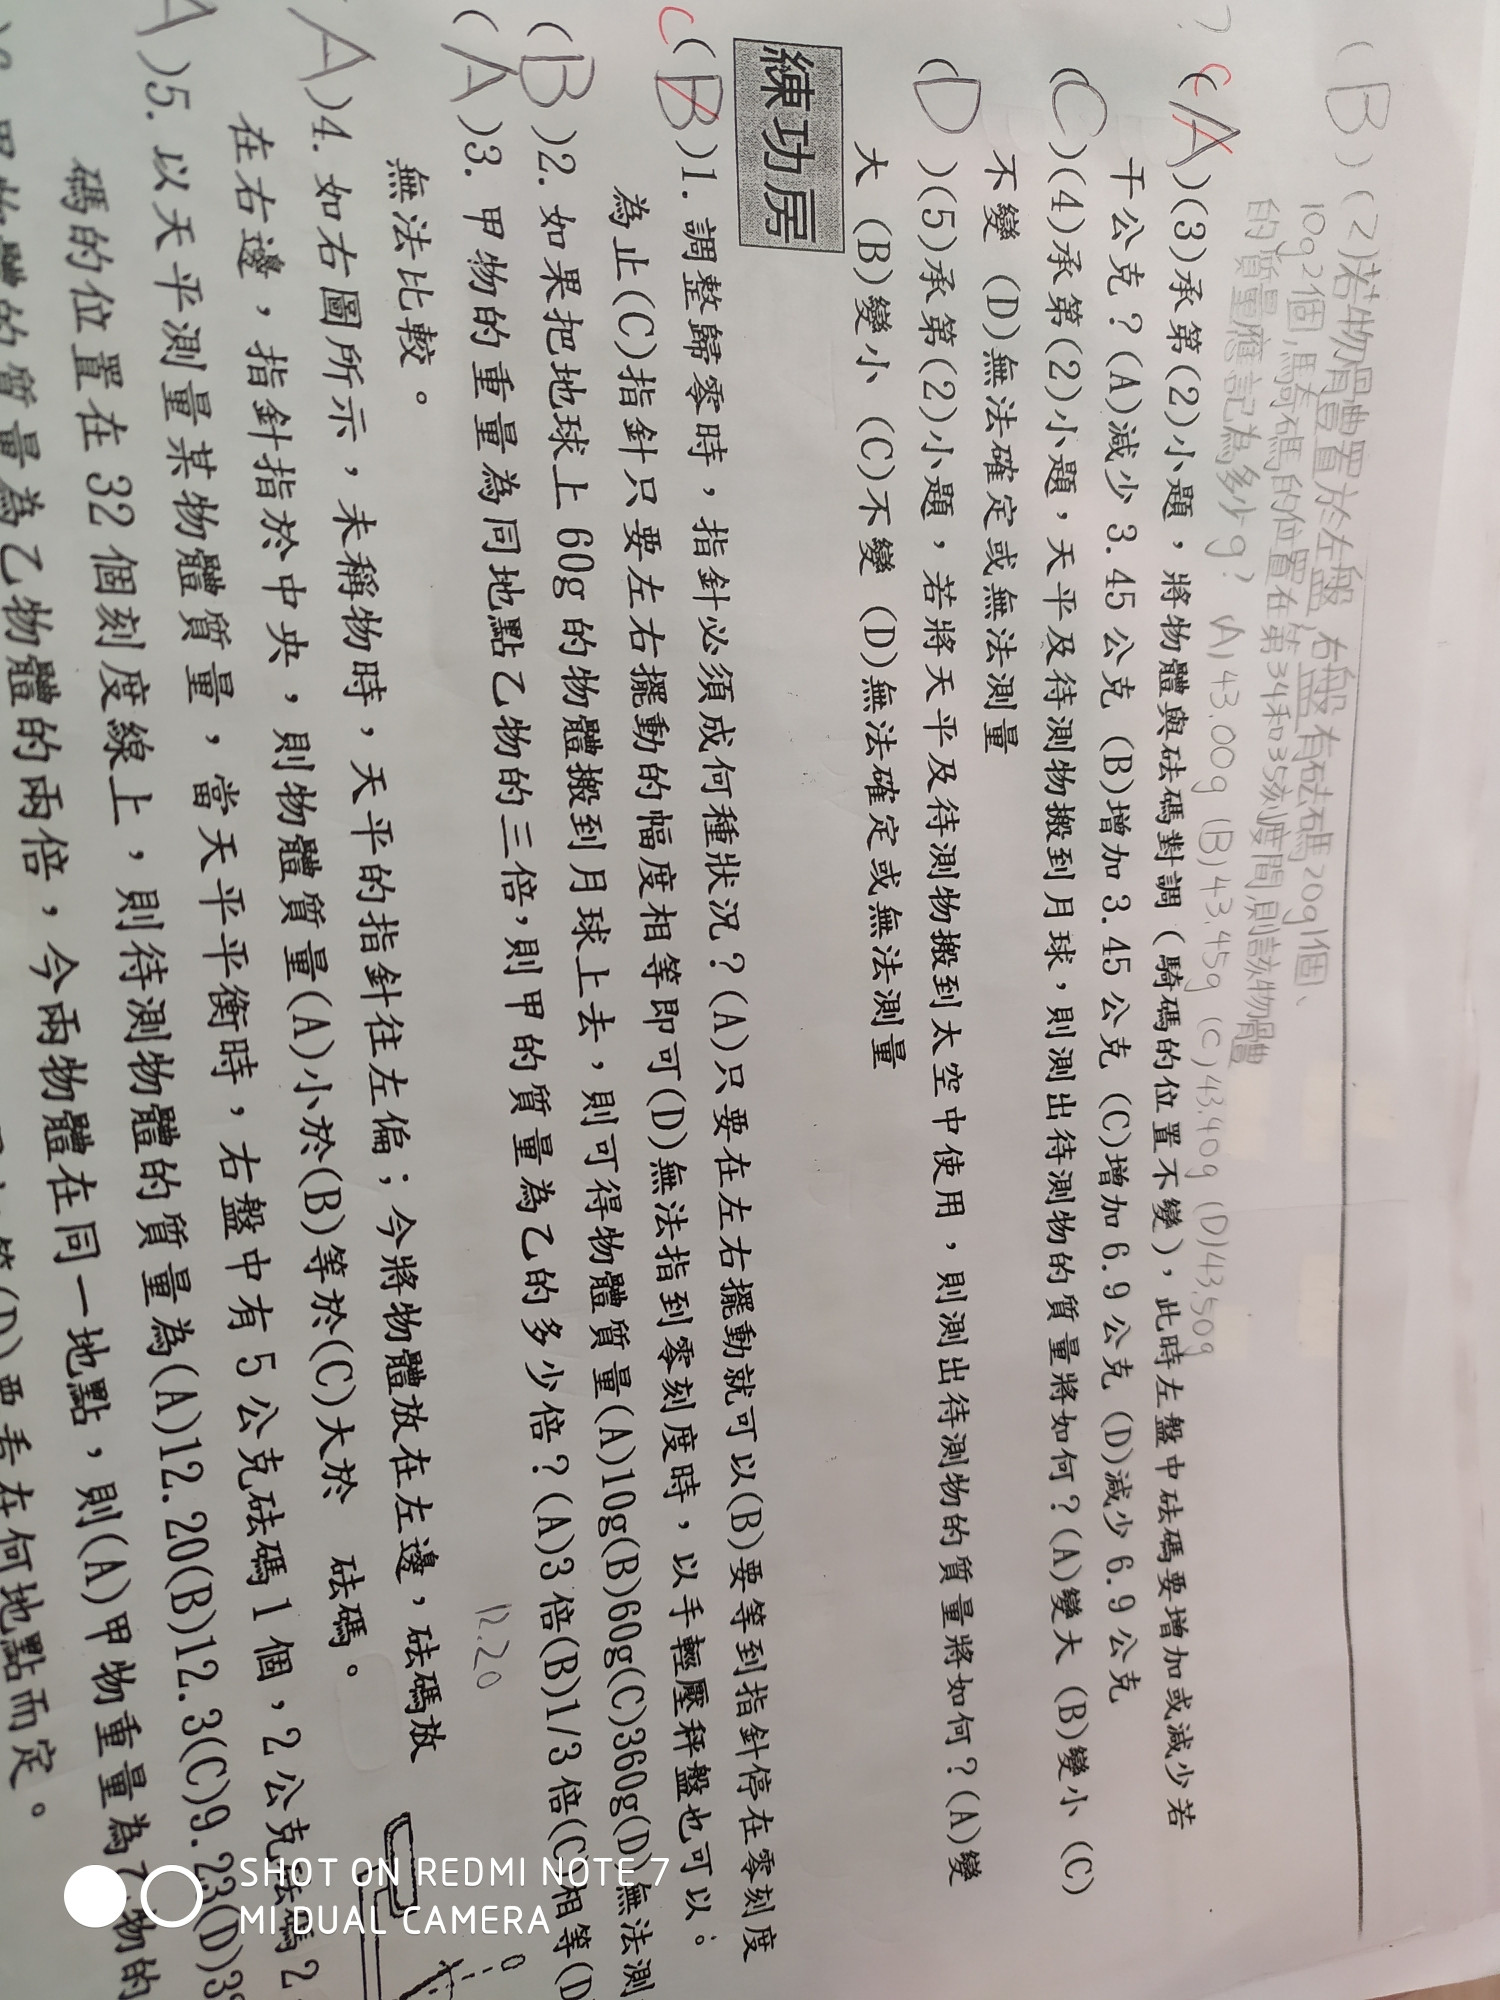 (B)(2)若物體置於左盤,右盤有砝碼20g1個、
10g2個,騎碼的位置在第34和35刻度間,則該物體
的質量應記為多少g? (A)43.00g (B)43.45g (C)43.40g (D)43.50g
? C
(A)(3)承第(2)小題,將物體與砝碼對調(騎碼的位置不變),此時左盤中砝碼要增加或減少若
干公克?(A)減少3.45公克 (B)增加3.45公克 (C)增加6.9公克 (D)減少6.9公克
(C)(4)承第(2)小題,天平及待測物搬到月球,則測出待測物的質量將如何?(A)變大 (B)變小 (C)
不變 (D)無法確定或無法測量
(D)(5)承第(2)小題,若將天平及待測物搬到太空中使用,則測出待測物的質量將如何?(A)變
大 (B)變小 (C)不變 (D)無法確定或無法測量
練功房
C
(B)1.調整歸零時,指針必須成何種狀況?(A)只要在左右擺動就可以(B)要等到指針停在零刻度
為止(C)指針只要左右擺動的幅度相等即可(D)無法指到零刻度時,以手輕壓秤盤也可以。
(B)2.如果把地球上60g的物體搬到月球上去,則可得物體質量(A)10g(B)60g(C)360g(D)無法測
(A)3.甲物的重量為同地點乙物的三倍,則甲的質量為乙的多少倍?(A)3倍(B)1/3倍(C)相等(D
無法比較。
12.20
A)4.如右圖所示,未稱物時,天平的指針往左偏;今將物體放在左邊,砝碼放
在右邊,指針指於中央,則物體質量(A)小於(B)等於(C)大於 砝碼。
0
A)5.以天平測量某物體質量,當天平平衡時,右盤中有5公克砝碼1個,2公克砝碼2
碼的位置在32個刻度線上,則待測物體的質量為(A)12.20(B)12.3(C)9.23(D)3
物體的質量為乙物體的兩倍,今兩物體在同一地點,則(A)甲物重量為乙物的
(D)要看在何地點而定。
SHOT ON REDMI NOTE 7
MI DUAL CAMERA